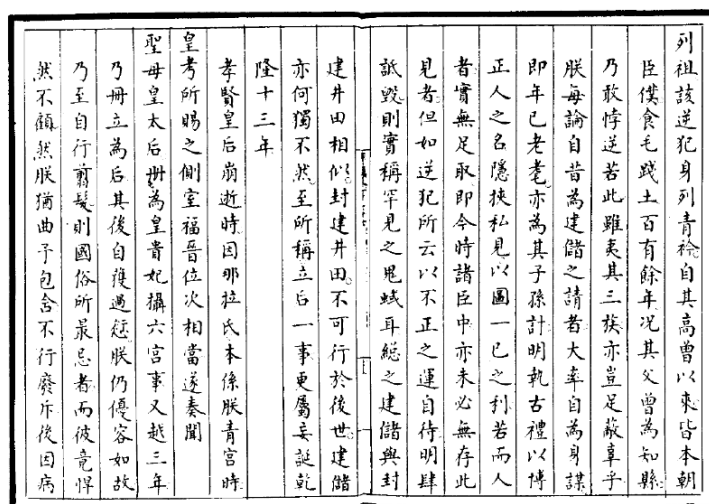 列祖該逆犯身列青衿自其高曾以來皆本朝
臣僕食毛踐土百有餘年况其父曾為知縣
乃敢悖逆若此雖夷其三族亦豈足蔽辜乎
朕每論自昔為建儲之請者大率自為身謀
即年已老耄亦為其子孫計明執古禮以博
正人之名隱挾私見以圖一已之利若而人
者實無足取即今時諸臣中亦未必無存此
見者但如逆犯所云以不正之運自待明肆
詆毀則實稱罕見之鬼蜮耳總之建儲與封
建井田相似封建井田不可行於後世建儲
亦何獨不然至所稱立后一事更屬妄誕乾
隆十三年
孝賢皇后崩逝時因那拉氏本係朕青宮時
皇考所賜之側室福晉位次相當遂奏聞
聖母皇太后冊為皇貴妃攝六宮事又越三年
乃冊立為后其後自獲過愆朕仍優容如故
乃至自行剪髮則國俗所最忌者而彼竟悍
然不顧然朕猶曲予包含不行廢斥後因病